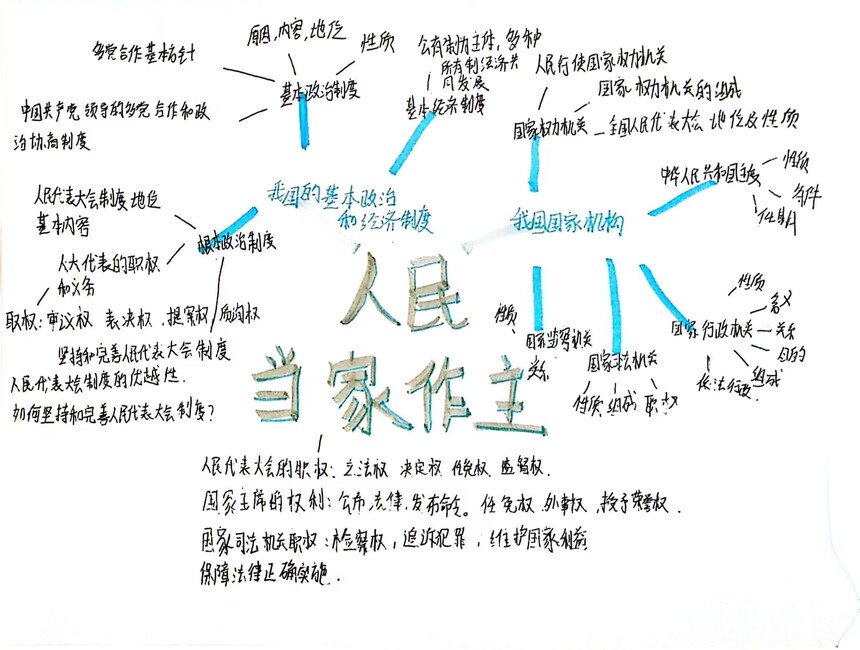 多党合作基本方针
原因,内容,地位
性质
公有制为主体,多种
所有制经济共
同发展
基本政治制度
基本经济制度
中国共产党领导的多党合作和政
治协商制度
人民行使国家权力机关
国家权力机关的组成
国家权力机关 — 全国人民代表大会 地位及性质
我国的基本政治
和经济制度
我国国家机构
中华人民共和国主席
性质
条件
任期
人民代表大会制度地位
基本内容
根本政治制度
人大代表的职权
和义务
取权:审议权 表决权,提案权,质询权
坚持和完善人民代表大会制度
人民代表大会制度的优越性.
如何坚持和完善人民代表大会制度?
人民
当家作主
性质
国家监察机关
关系
国家司法机关
性质 组成 职权
国家行政机关
性质
名义
关系
目的
组成
依法行政.
人民代表大会的职权:立法权 决定权 任免权 监督权.
国家主席的权利:公布法律,发布命令。任免权.外事权,授予荣誉权.
国家司法机关职权:检察权,追诉犯罪,维护国家利益
保障法律正确实施.